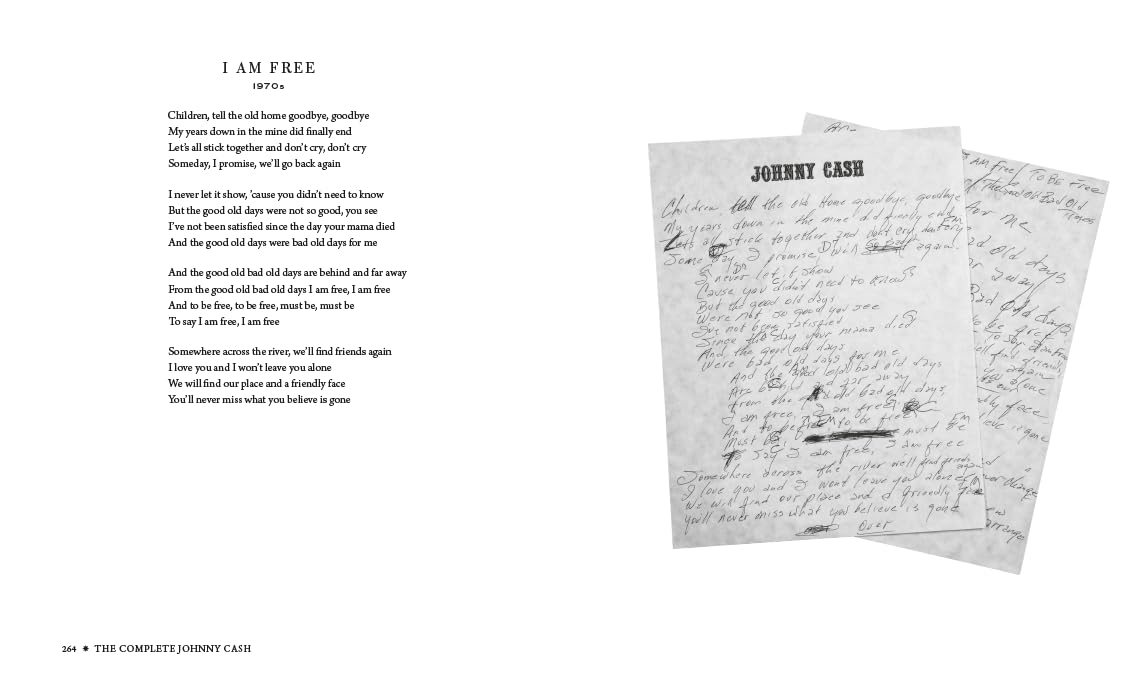 I AM FREE
1970s
Children, tell the old home goodbye, goodbye
My years down in the mine did finally end
Let's all stick together and don't cry, don't cry
Someday, I promise, we'll go back again
I never let it show, 'cause you didn't need to know
But the good old days were not so good, you see
I've not been satisfied since the day your mama died
And the good old days were bad old days for me
And the good old bad old days are behind and far away
From the good old bad old days I am free, I am free
And to be free, to be free, must be, must be
To say I am free, I am free
Somewhere across the river, we'll find friends again
I love you and I won't leave you alone
We will find our place and a friendly face
You'll never miss what you believe is gone
264 ✷ THE COMPLETE JOHNNY CASH
JOHNNY CASH
Children, tell the old Home goodbye, goodbye
My years down in the mine did finally end
Lets all stick together and dont cry, dont cry
Some day I promise, will again.
I never let it show
Cause you didn't need to know
But the good old days
Were not so good you see
Ive not been satisfied
Since the day your mama died
And, the good old days
Were bad old days for me
And the old bad old days
Are behind and far away
From the old bad old days,
I am free, I am free
And to be free, to be free
Must be, must be
To say I am free, I am free
Somewhere across the river we'll find friends again
I love you and I wont leave you alone
We will find our place and a friendly face
You'll never miss what you believe is gone
Over
I AM Free / TO BE Free
Bad Old
Times
for me
old days
away
Bad Old days
be free
find friends
again
alone
face
is gone
change
arrange